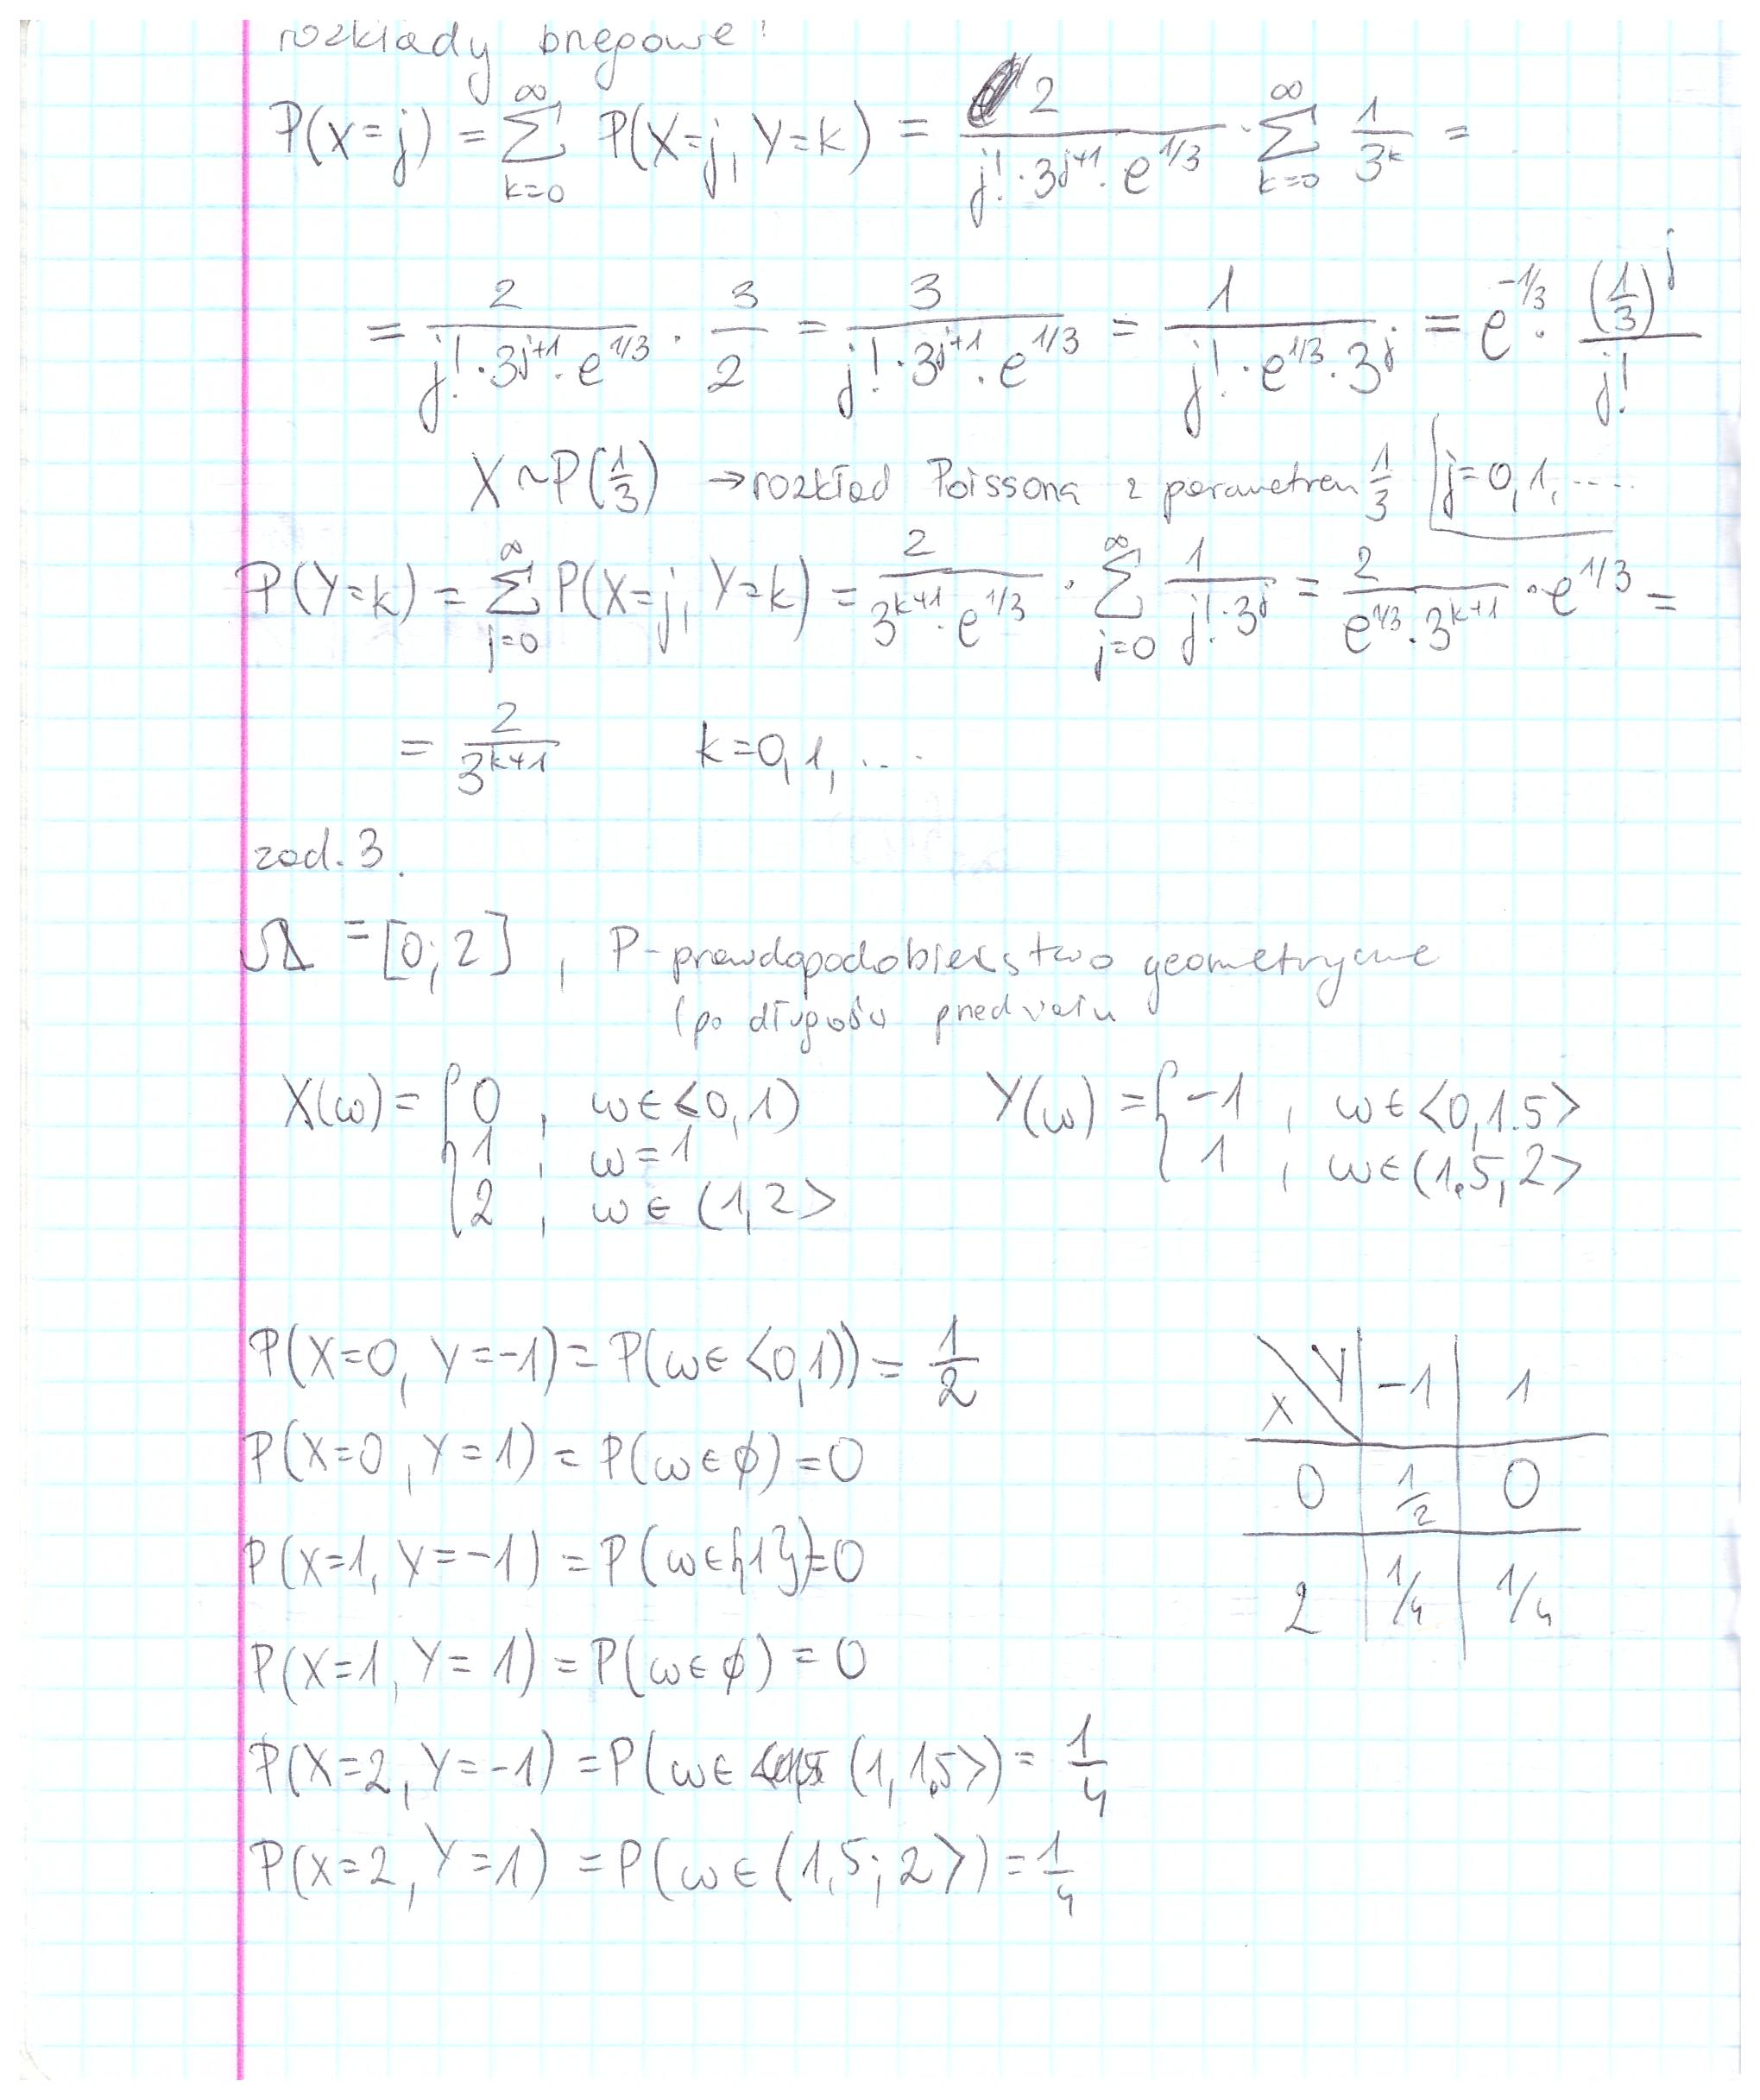 rozkłady brzegowe:
P(X=j) = ∑_{k=0}^{∞} P(X=j, Y=k) = 2/(j!·3^{j+1}·e^{1/3}) · ∑_{k=0}^{∞} 1/3^k =
= 2/(j!·3^{j+1}·e^{1/3}) · 3/2 = 3/(j!·3^{j+1}·e^{1/3}) = 1/(j!·e^{1/3}·3^j) = e^{-1/3} · (1/3)^j/j!
X~P(1/3) → rozkład Poissona z parametrem 1/3 j=0,1,.....
P(Y=k) = ∑_{j=0}^{∞} P(X=j, Y=k) = 2/(3^{k+1}·e^{1/3}) · ∑_{j=0}^{∞} 1/(j!·3^j) = 2/(e^{1/3}·3^{k+1}) · e^{1/3} =
= 2/3^{k+1} k=0,1,...
zad. 3.
Ω = [0; 2] , P-prawdopodobieństwo geometryczne
(po długości przedziału
X(ω) = { 0 , ω∈<0,1) Y(ω) = { -1 , ω∈<0,1.5>
1 , ω=1 1 , ω∈(1.5, 2>
2 , ω∈(1,2>
P(X=0, Y=-1) = P(ω∈<0,1)) = 1/2
P(X=0, Y=1) = P(ω∈ϕ) = 0
P(X=1, Y=-1) = P(ω∈{1})=0
P(X=1, Y=1) = P(ω∈ϕ) = 0
P(X=2, Y=-1) = P(ω∈ (1, 1,5>) = 1/4
P(X=2, Y=1) = P(ω∈(1,5; 2>) = 1/4
X Y -1 1
0 1/2 0
2 1/4 1/4